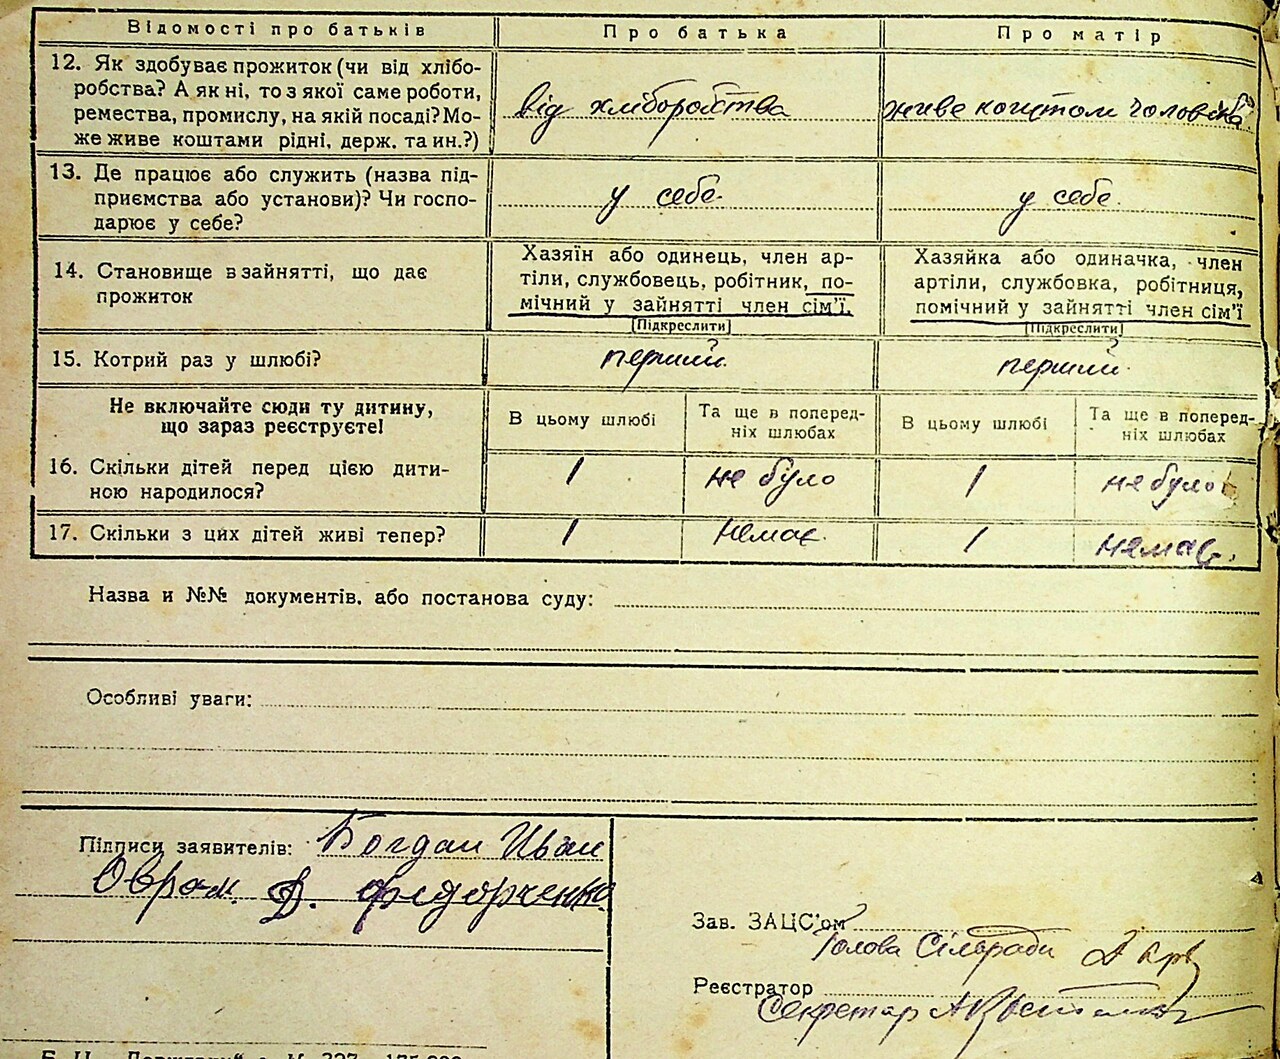 Відомості про батьків Про батька Про матір
12. Як здобуває прожиток (чи від хлібо-
робства? А як ні, то з якої саме роботи,
ремества, промислу, на якій посаді? Мо-
же живе коштами рідні, держ. та ин.?)
від хліборобства живе коштом чоловіка
13. Де працює або служить (назва під-
приємства або установи)? Чи госпо-
дарює у себе?
у себе у себе
14. Становище в зайнятті, що дає
прожиток
Хазяїн або одинець, член ар-
тіли, службовець, робітник, по-
мічний у зайнятті член сім'ї.
[Підкреслити]
Хазяйка або одиначка, член
артіли, службовка, робітниця,
помічний у зайнятті член сім'ї
[Підкреслити]
15. Котрий раз у шлюбі? перший перший
Не включайте сюди ту дитину,
що зараз реєструєте!
В цьому шлюбі
Та ще в поперед-
ніх шлюбах
В цьому шлюбі
Та ще в поперед-
ніх шлюбах
16. Скільки дітей перед цією дити-
ною народилося?
1 не було 1 не було
17. Скільки з цих дітей живі тепер? 1 немає 1 немає.
Назва и №№ документів, або постанова суду:
Особливі уваги:
Підписи заявителів: Богдан Иван
Оврам. Д. Федорченко
Зав. ЗАЦС'ом
Голова Сільради
Реєстратор
Секретар